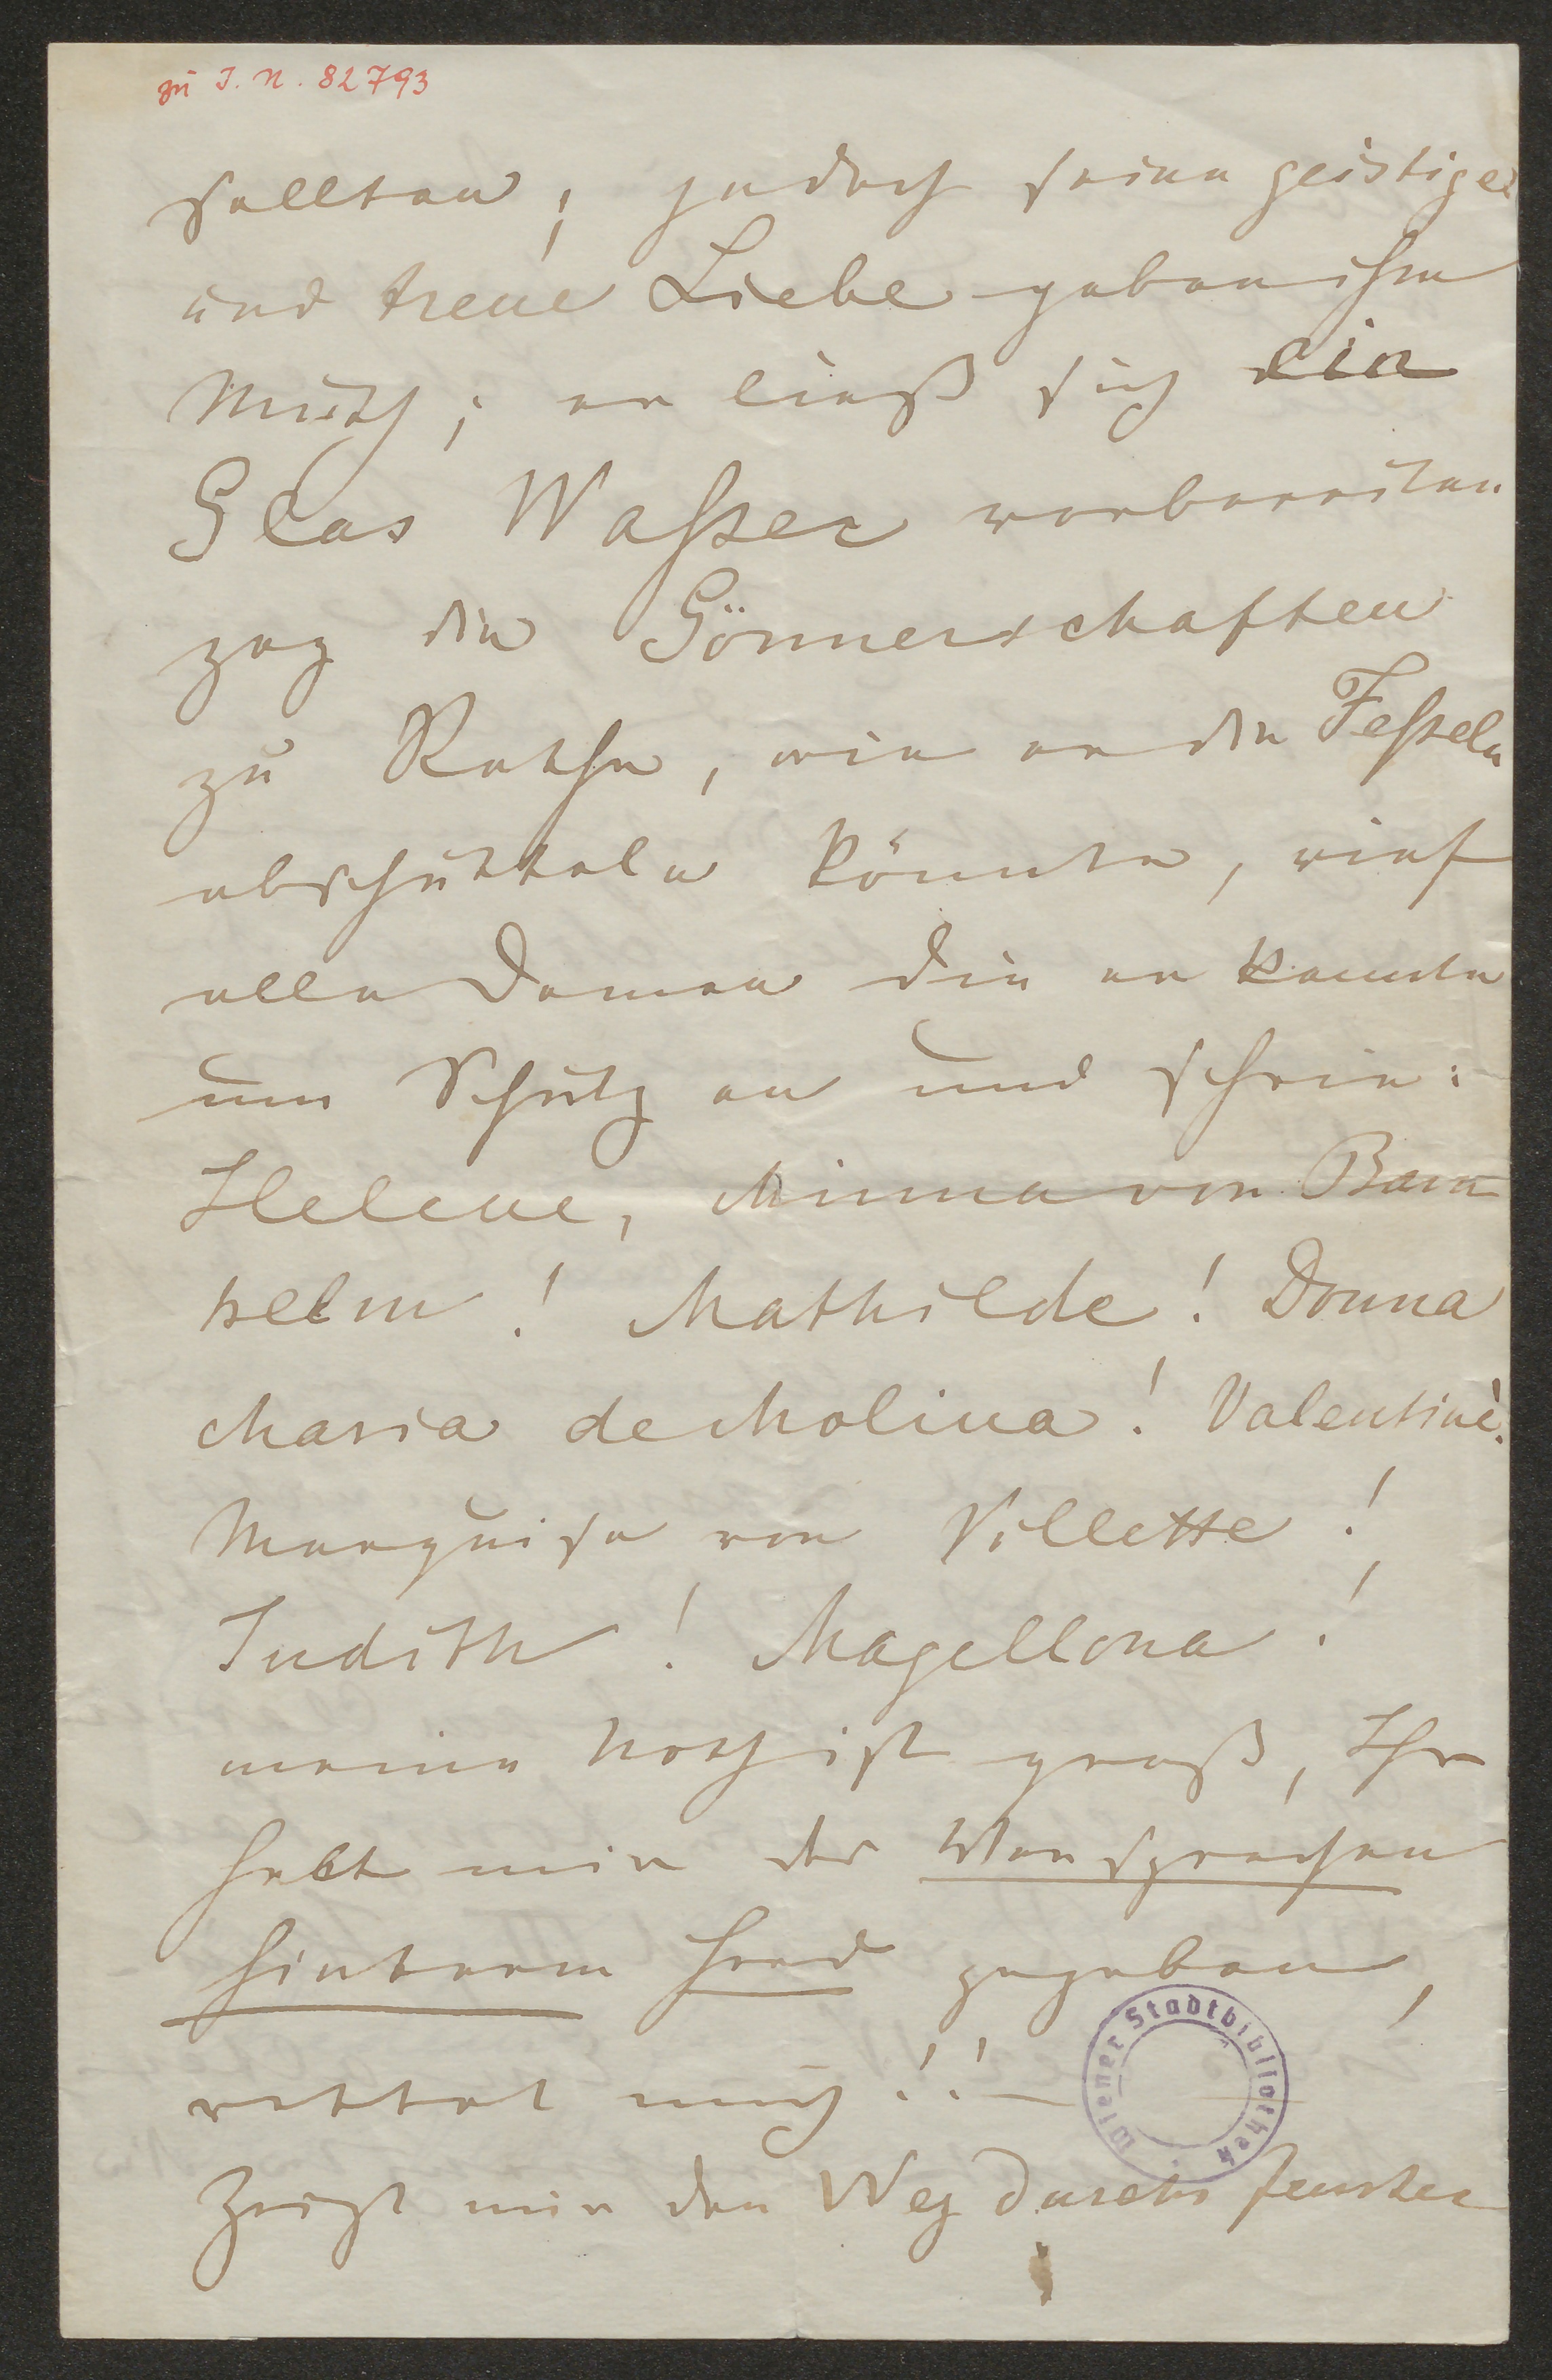 zu I. N. 82793
sollten; jedoch seine geistige
und treue Liebe gaben ihm
Muth; er ließ sich ein
Glas Wasser vorbereiten
zog die Gönnerschaften
zu Rathe, wie er die Fesseln
abschütteln könnte, rief
alle Damen die er kannte
um Schutz an und schrie:
Helene, Minna von Barn
helm! Mathilde! Donna
Maria de Molina! Valentine!
Marquise von Villette!
Judith! Magellona!
meine Noth ist groß, Ihr
habt mir das Versprechen
hinterm Herd gegeben,
rettet mich!! —
Zeigt mir den Weg durchs Fenster
Wiener Stadtbibliothek